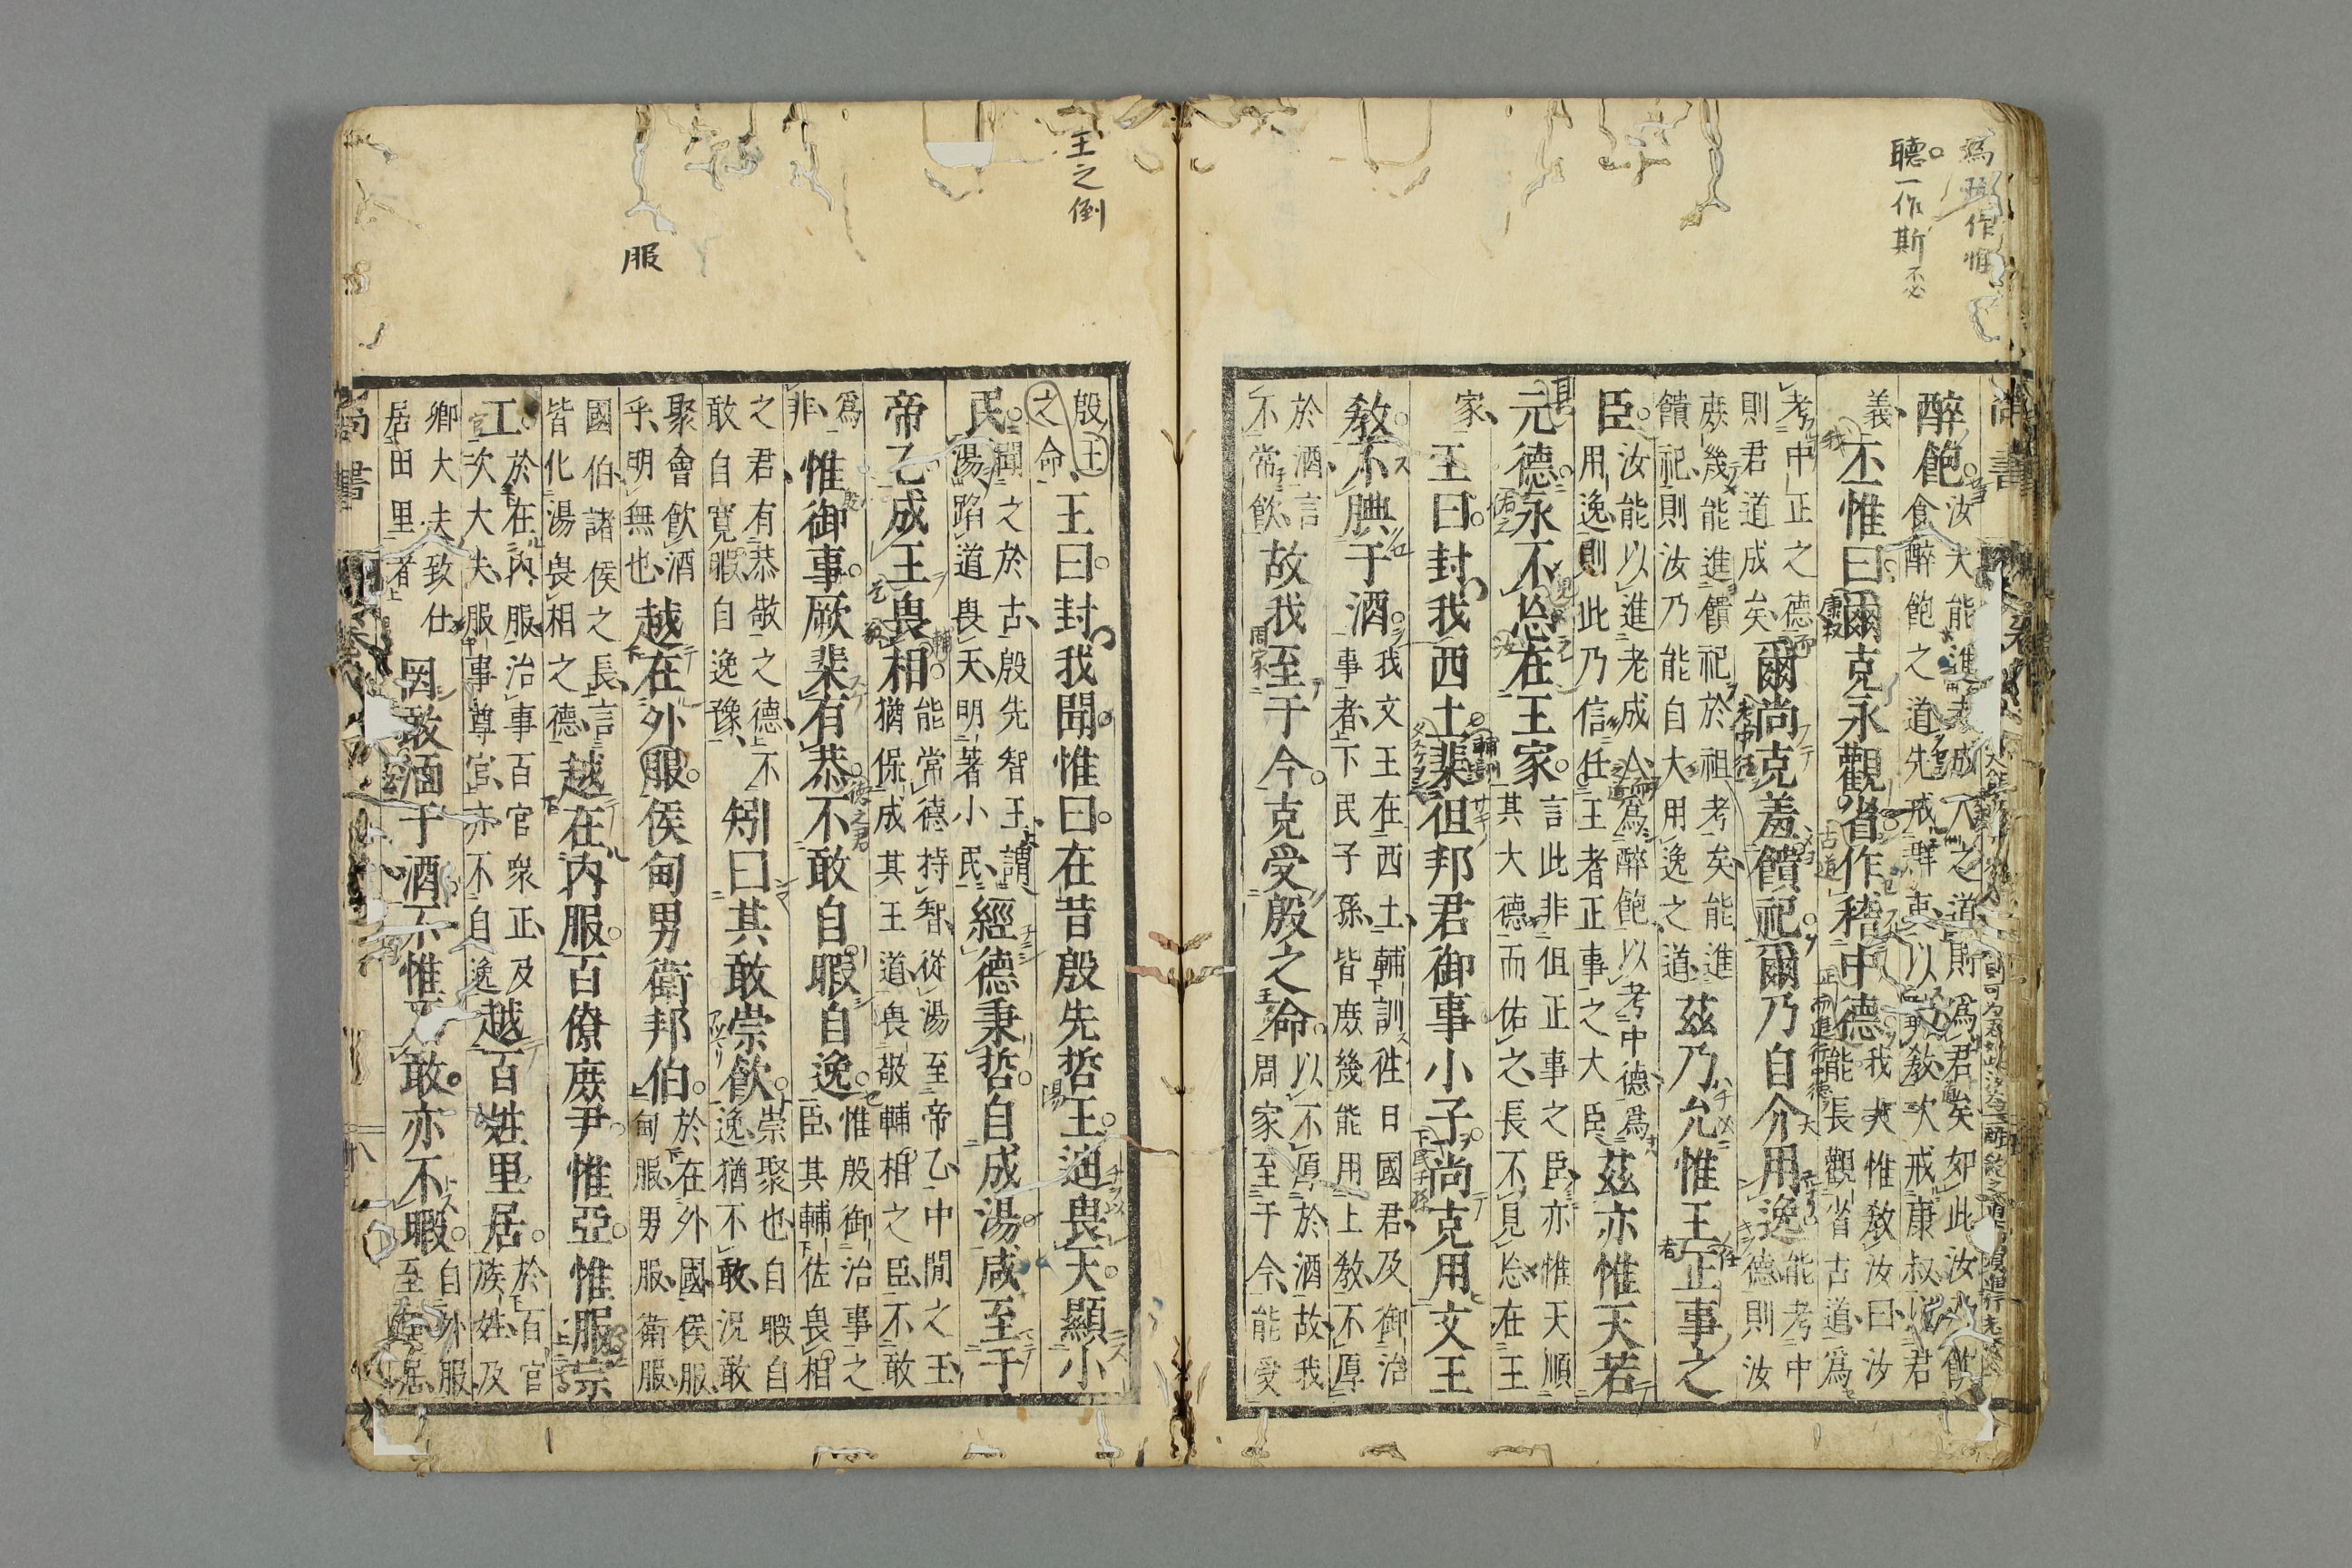 聽一作斯
醉飽
汝大能進老成人之道則爲君矣如此汝乃飲
食醉飽之道先戒群吏以聽教次戒康叔以君
義
丕惟曰爾克永觀省作稽中德
我大惟教汝曰汝
能長觀省古道爲
考中正之德
則君道成矣
爾尚克羞饋祀爾乃自介用逸
能考中
德則汝
庶幾能進饋祀於祖考矣能進
饋祀則汝乃能自大用逸之道
茲乃允惟王正事之
臣
汝能以進老成人爲醉飽以考中德爲
用逸則此乃信任王者正事之大臣
茲亦惟天若
元德永不忘在王家
言此非但正事之臣亦惟天順
其大德而佑之長不見忘在王
家
王曰封我西土棐徂邦君御事小子尚克用文王
教不腆于酒
我文王在西土輔訓往日國君及御治
事者下民子孫皆庶幾能用上教不厚
於酒言
不常飲
故我至于今克受殷之命
以不厚於酒故我
周家至于今能受
王之倒
服
殷王
之命
王曰封我聞惟曰在昔殷先哲王迪畏天顯小
民
聞之於古殷先智王謂
湯蹈道畏天明著小民
經德秉哲自成湯咸至于
帝乙成王畏相
能常德持智從湯至帝乙中間之王
猶保成其王道畏敬輔相之臣不敢
爲
非
惟御事厥棐有恭不敢自暇自逸
惟殷御治事之
臣其輔佐畏相
之君有恭敬之德不
敢自寬暇自逸豫
矧曰其敢崇飲
崇聚也自暇自
逸猶不敢況敢
聚會飲酒
乎明無也
越在外服侯甸男衛邦伯
於在外國侯服
甸服男服衛服
國伯諸侯之長言
皆化湯畏相之德
越在内服百僚庶尹惟亞惟服宗
工
於在内服治事百官衆正及
次大夫服事尊官亦不自逸
越百姓里居
於百官
族姓及
卿大夫致仕
居田里者
罔敢湎于酒不惟不敢亦不暇
自外服
至里居
尚書